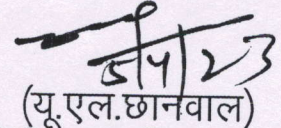 5/4/23
(यू.एल.छानवाल)